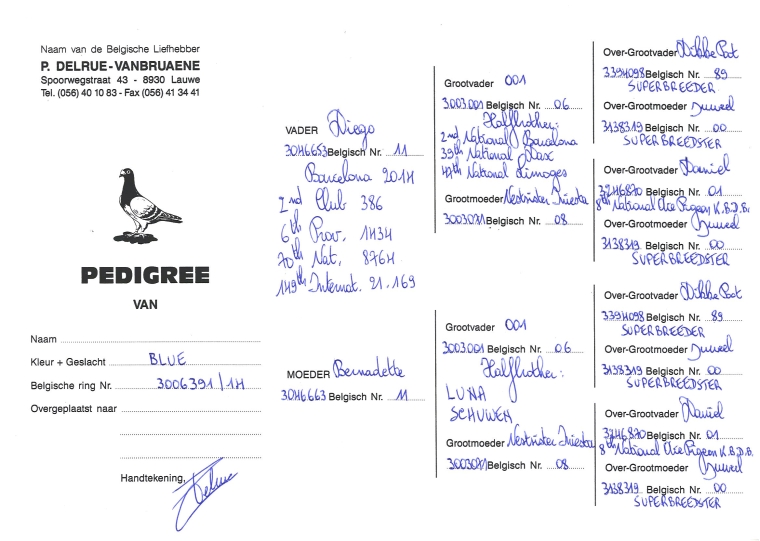 Naam van de Belgische Liefhebber
P. DELRUE-VANBRUAENE
Spoorwegstraat 43 - 8930 Lauwe
Tel. (056) 40 10 83 - Fax (056) 41 34 41
PEDIGREE
VAN
Naam
Kleur + Geslacht BLUE
Belgische ring Nr. 3006391/14
Overgeplaatst naar
Handtekening,
Delrue
VADER Diego
3046653 Belgisch Nr. 11
Barcelona 2014
2nd Club 386
6th Prov. 1434
70th Nat. 8764
149th Internat. 21.169
MOEDER Bernadette
3046663 Belgisch Nr. 11
Grootvader 001
3003001 Belgisch Nr. 06
Halfbrother:
2nd National Barcelona
39th National Dax
47th National Limoges
Grootmoeder Nestzuster
Belgisch Nr. 08
Grootvader 001
3003001 Belgisch Nr. 06
Halfbrother:
LUNA
Grootmoeder Nestzuster
Belgisch Nr. 08
Over-Grootvader Dikke Poot
3394098 Belgisch Nr. 89
SUPERBREEDER
Over-Grootmoeder Juweel
3138319 Belgisch Nr. 00
SUPERBREEDSTER
Over-Grootvader Daniel
3246870 Belgisch Nr. 01
8th National Ace Pigeon K.B.D.B.
Over-Grootmoeder Juweel
3138319 Belgisch Nr. 00
SUPERBREEDSTER
Over-Grootvader Dikke Poot
3394098 Belgisch Nr. 89
SUPERBREEDER
Over-Grootmoeder Juweel
3138319 Belgisch Nr. 00
SUPERBREEDSTER
Over-Grootvader Daniel
3246870 Belgisch Nr. 01
8th National Ace Pigeon K.B.D.B.
Over-Grootmoeder Juweel
3138319 Belgisch Nr. 00
SUPERBREEDSTER